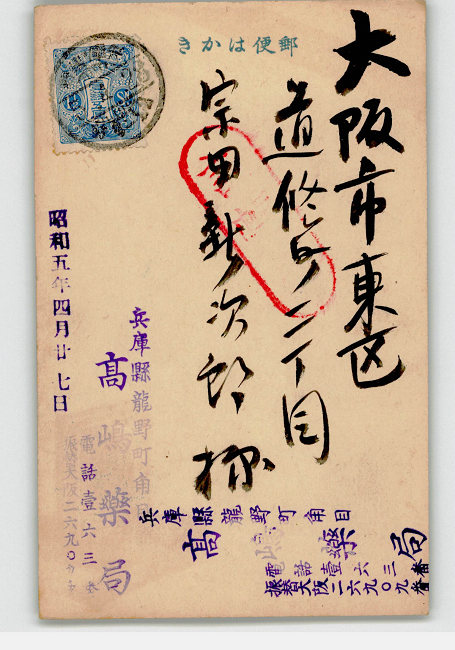 郵便はかき
大阪市東区
道修町二丁目
宗田新次郎様
昭和五年四月廿七日
兵庫縣龍野町角
高嶋藥局
電話壹六三番
振替大阪二六九〇九番
兵庫縣龍野町角目
高嶋藥局
電話壹六三番
振替大阪二六九〇九番